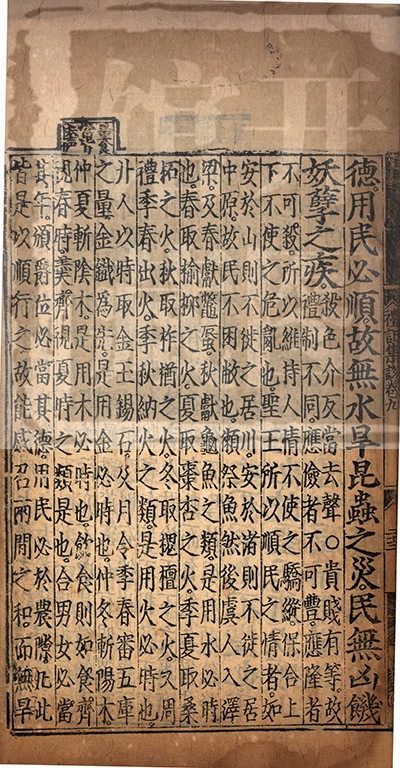 德用民必順故無水旱昆蟲之災民無凶饑
妖孽之疾
殺色介反當去聲○貴賤有等故
禮制不同應儉者不可豐應隆者
不可殺所以維持人情不使之驕縱保合上
下不使之危亂也聖王所以順民之情者如
安於山則不徙之居川安於渚則不徙之居
中原故民不困敝也獺祭魚然後虞人入澤
梁及春獻鼈蜃秋獻龜魚之類是用水必時
也春取榆柳之火夏取棗杏之火季夏取桑
柘之火秋取柞楢之火冬取槐檀之火又周
禮季春出火季秋納火之類是用火必時也
卝人以時取金玉錫石及月令季春審五庫
之量金鐵為先是用金必時也仲冬斬陽木
仲夏斬陰木是用木必時也飲食則如食齊
視春時羹齊視夏時之類是也合男女必當
其年頒爵位必當其德用民必於農隙凡此
皆是以順行之故能感召兩間之和而無旱